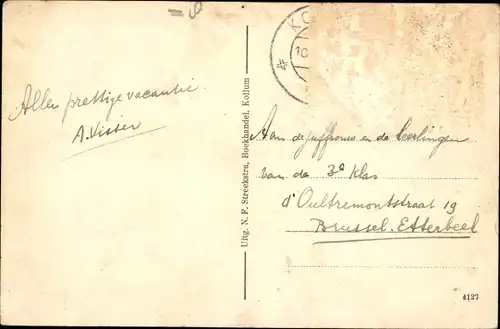 Allen prettige vacantie.
A. Visser
KO
10
Uitg. N. F. Streekstra, Boekhandel, Kollum
Aan de juffrouw en de leerlingen
van de 3e klas
d'Oultremontstraat 19
Brussel-Etterbeek
4127